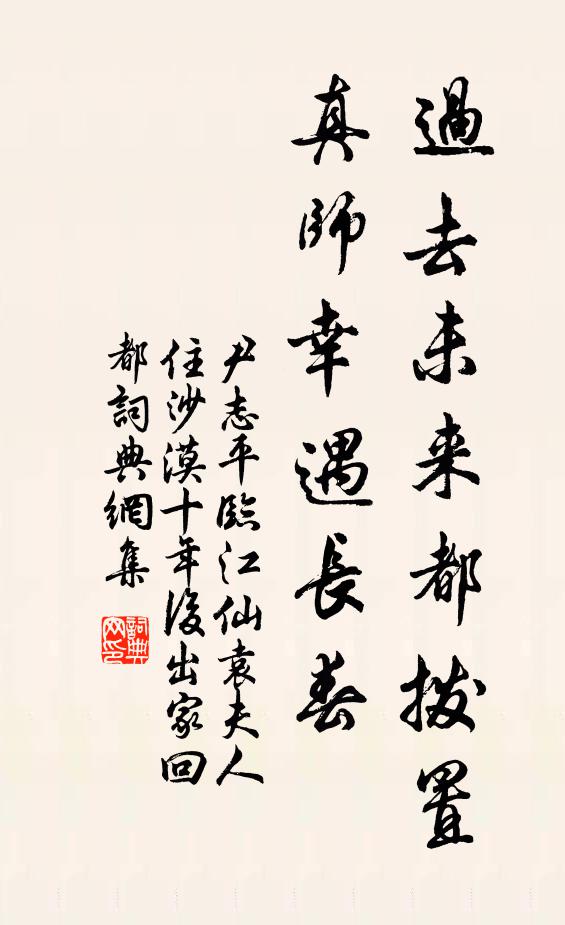 過去未来都撥置
真師幸遇長春
尹志平臨江仙袁夫人
住沙漠十年後出家回
都詞典網集
詞典
网印